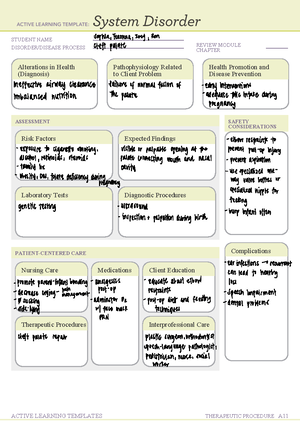 ACTIVE LEARNING TEMPLATE: System Disorder
STUDENT NAME
DISORDER/DISEASE PROCESS Cleft palate
REVIEW MODULE CHAPTER
Alterations in Health
(Diagnosis)
ineffective airway clearance
imbalanced nutrition
Pathophysiology Related
to Client Problem
failure of normal fusion of
the palate
Health Promotion and
Disease Prevention
early interventions
adequate folic intake during
pregnancy
ASSESSMENT
SAFETY
CONSIDERATIONS
Risk Factors
- exposure to cigarette smoking,
alcohol, steroids
- family hx
folate deficiency during
pregnancy
Expected Findings
visible or palpable opening of the
palate connecting mouth and nasal
cavity
- elbow restraints to
prevent injury
- prevent aspiration
- use specialized one-
way valve bottles or
specialized nipple for
feeding
- burp infant often
Laboratory Tests
genetic testing
Diagnostic Procedures
- ultrasound
- inspection + palpation during birth
PATIENT-CENTERED CARE
Complications
Nursing Care
- promote parent-infant bonding
Medications
- analgesics
post-op
Client Education
- educate about elbow
restraints
- post-op diet and feeding
techniques
- ear infections → recurrent
can lead to hearing
loss
- speech impairment
- dental problems
Therapeutic Procedures
cleft palate repair
Interprofessional Care
plastic surgeon, orthodontist
speech-language pathologist,
pediatrician, nurse, social
worker
ACTIVE LEARNING TEMPLATES
THERAPEUTIC PROCEDURE A11